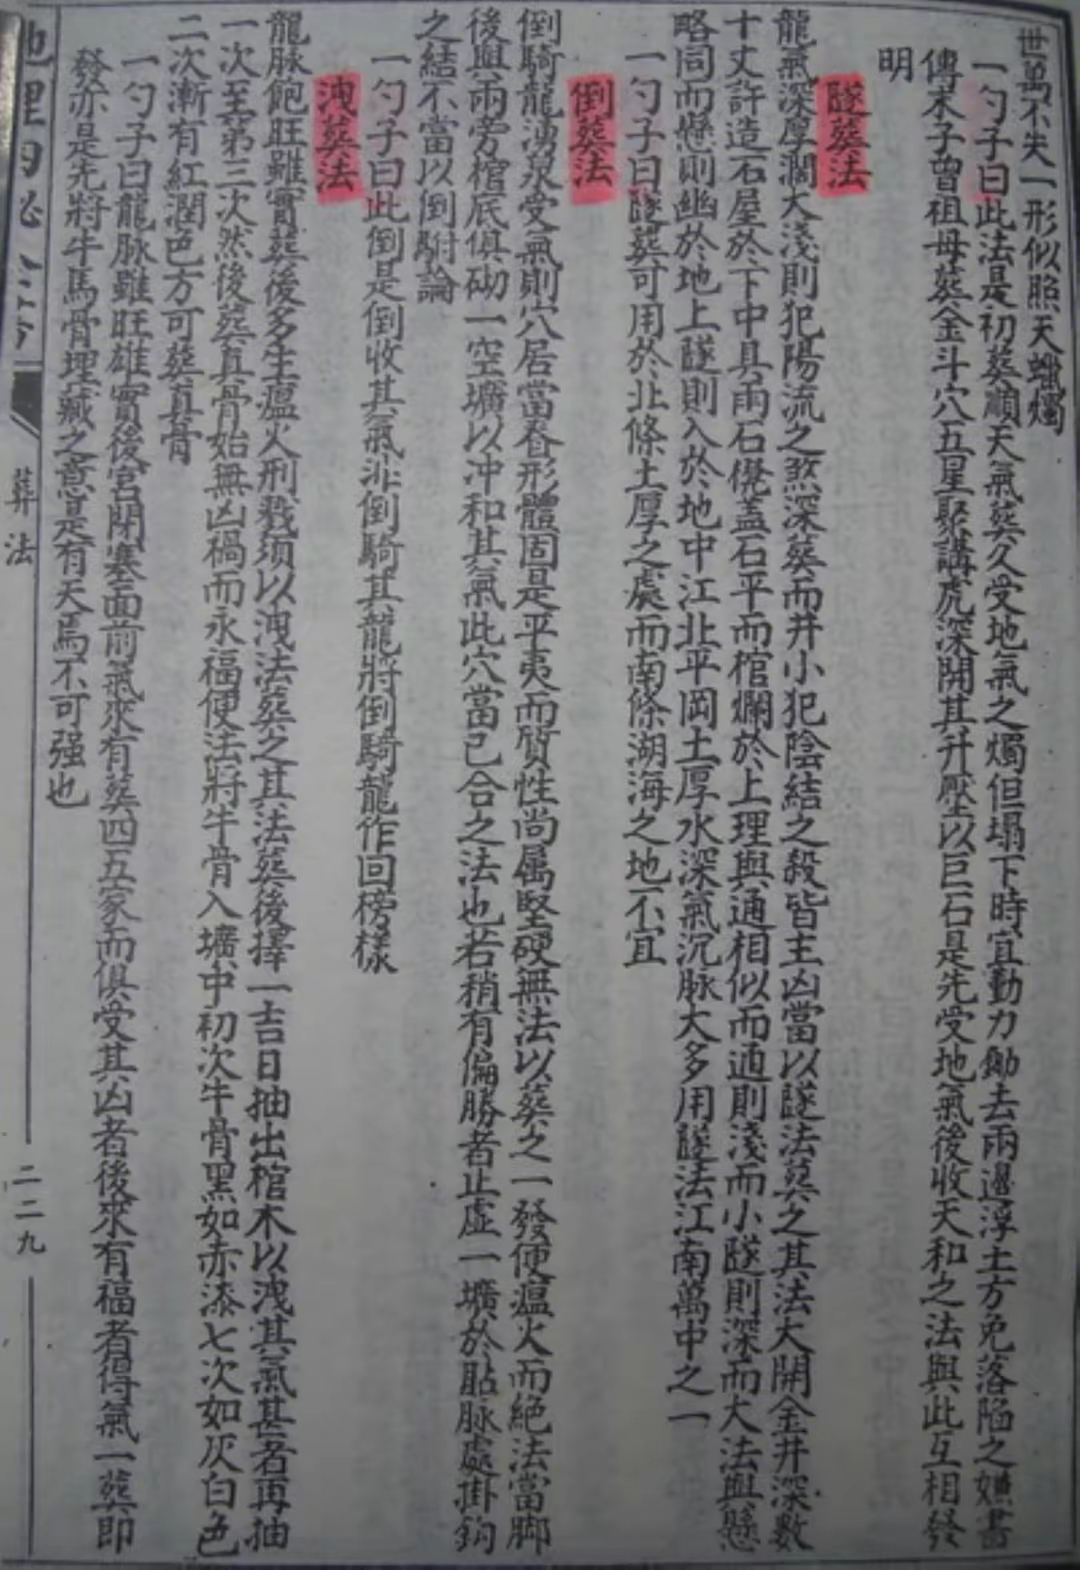 世萬不失一形似照天蠟燭
一勺子曰此法是初葬顺天氣葬久受地氣之燭但塌下時宜勤力鋤去兩邊浮土方免落陷之嫌書
傳朱子曾祖母葬金斗穴五星聚講虎深開其井壓以巨石是先受地氣後收天和之法與此互相發
明
隧葬法
龍氣深厚濶大淺則犯陽流之煞深葬而井小犯陰結之殺皆主凶當以隧法葬之其法大開金井深數
十丈許造石屋於下中具兩石櫈蓋石平而棺擱於上理與通相似而通則淺而小隧則深而大法與懸
略同而懸則幽於地上隧則入於地中江北平岡土厚水深氣沉脉大多用隧法江南萬中之一
一勺子曰隧葬可用於北條土厚之處而南條湖海之地不宜
倒葬法
倒騎龍湧泉受氣則穴居當脊形體固是平夷而質性尚属堅硬無法以葬之一發便瘟火而絕法當脚
後與兩旁棺底俱砌一空壙以冲和其氣此穴當已合之法也若稍有偏勝者止虛一壙於貼脉處掛鈎
之結不當以倒騎論
一勺子曰此倒是倒收其氣非倒騎其龍將倒騎龍作回榜樣
洩葬法
龍脉飽旺雖實葬後多生瘟火刑戮须以洩法葬之其法葬後擇一吉日抽出棺木以洩其氣甚者再抽
一次至第三次然後葬真骨始無凶禍而永福便法將牛骨入壙中初次牛骨黑如赤漆七次如灰白色
二次漸有紅潤色方可葬真骨
一勺子曰龍脉雖旺雄實後宮閉塞面前氣來有葬四五家而俱受其凶者後來有福者得氣一葬即
發亦是先將牛馬骨埋藏之意是有天焉不可强也
葬法
二二九